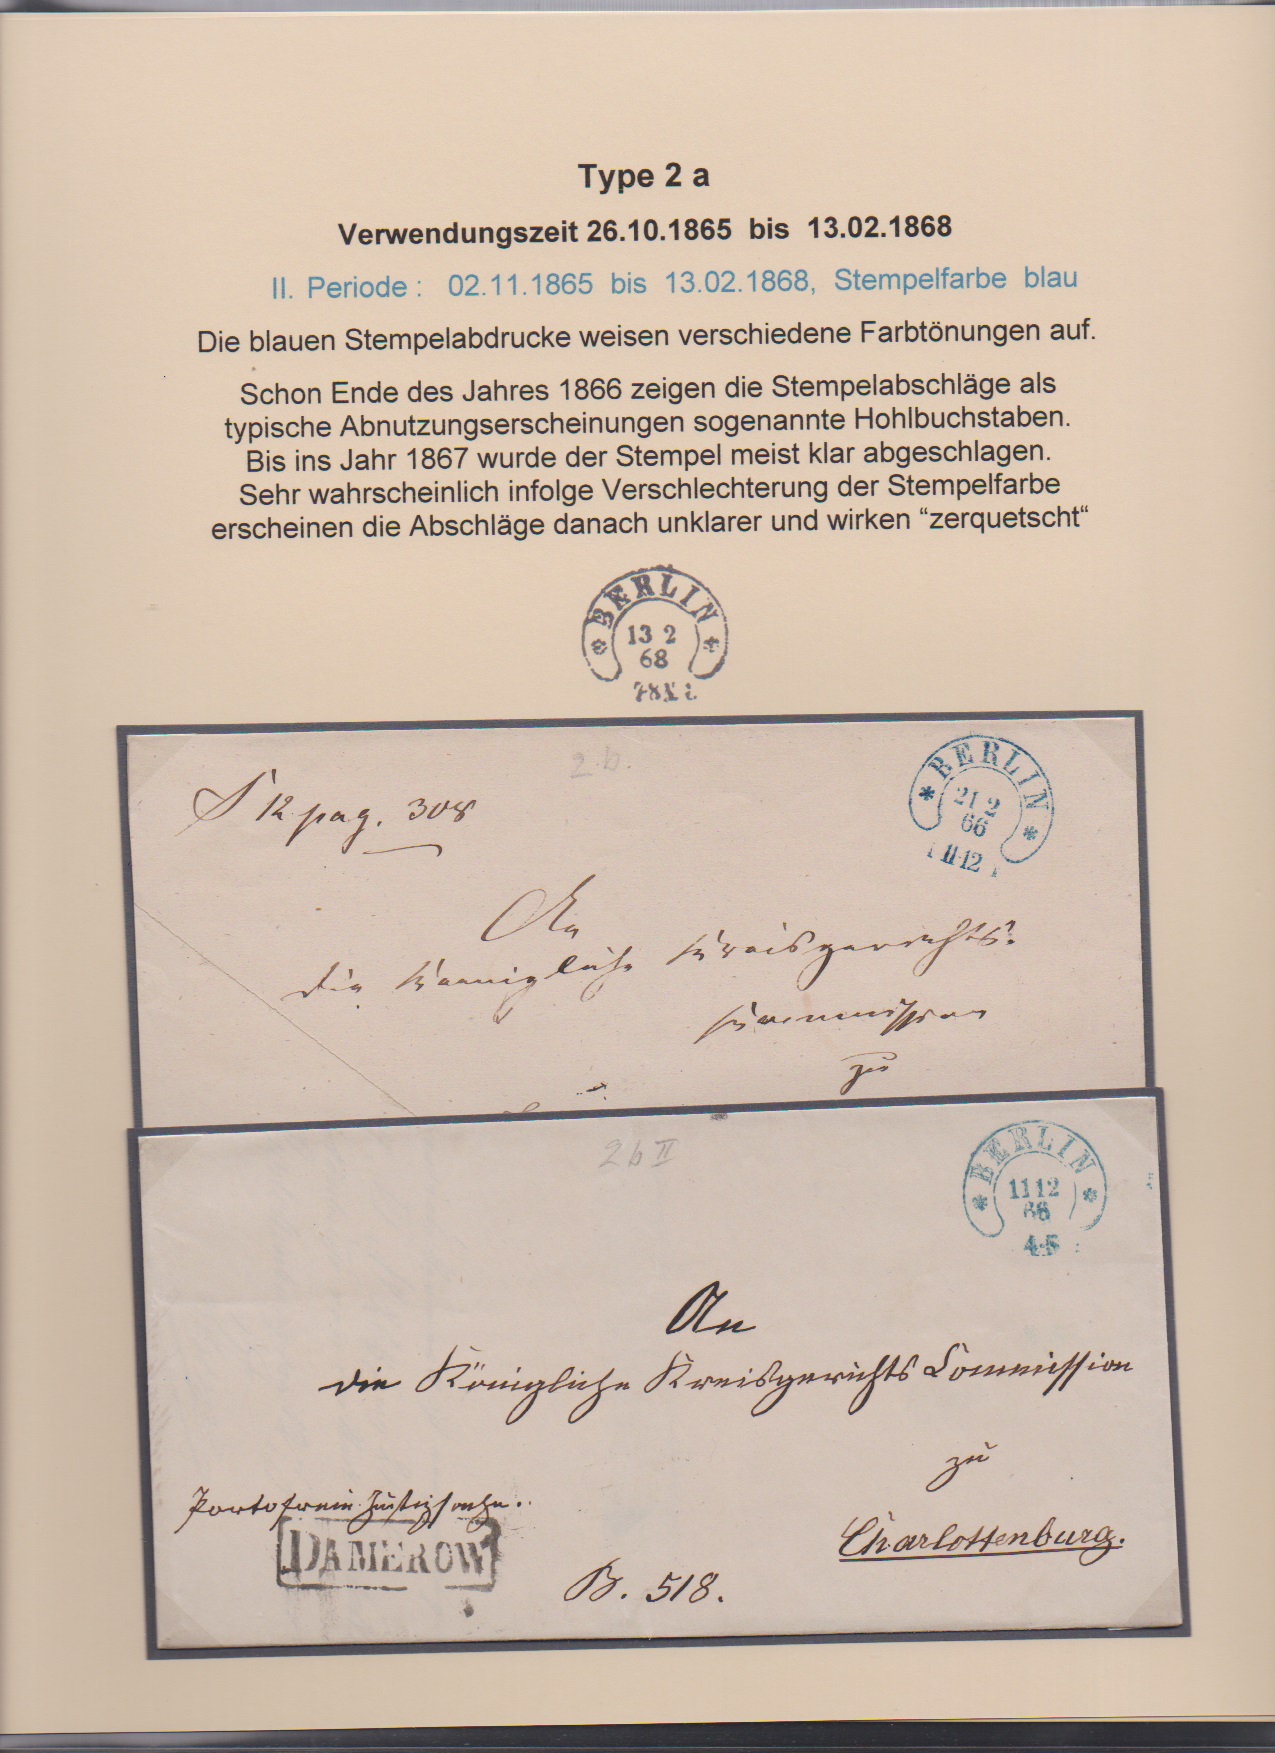 Type 2 a
Verwendungszeit 26.10.1865 bis 13.02.1868
II. Periode : 02.11.1865 bis 13.02.1868, Stempelfarbe blau
Die blauen Stempelabdrucke weisen verschiedene Farbtönungen auf.
Schon Ende des Jahres 1866 zeigen die Stempelabschläge als
typische Abnutzungserscheinungen sogenannte Hohlbuchstaben.
Bis ins Jahr 1867 wurde der Stempel meist klar abgeschlagen.
Sehr wahrscheinlich infolge Verschlechterung der Stempelfarbe
erscheinen die Abschläge danach unklarer und wirken “zerquetscht“
BERLIN
13 2
68
2.b.
BERLIN
21 2
66
11-12
12 pag. 308
An
die Koenigliche Kreisgerichts-
Kommission
zu
2b II
BERLIN
11 12
66
4-5
An
die Königliche Kreisgerichts Commission
zu
Portofreie Justizsache.
Charlottenburg.
DAMEROW
B. 518.